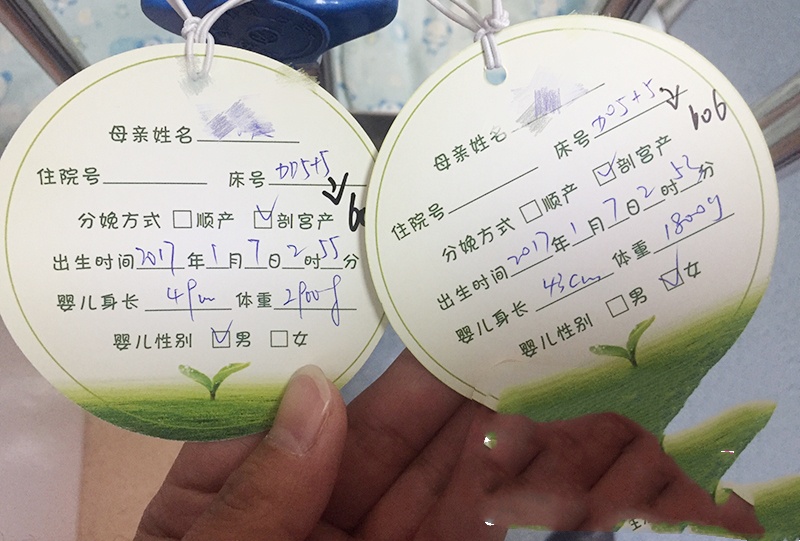 母亲姓名
住院号 床号 DD5+5
60
分娩方式 □顺产 ☑剖宫产
出生时间 2017年1月7日2时55分
婴儿身长 49cm 体重 2900g
婴儿性别 ☑男 □女
母亲姓名
住院号 床号 D05+5
606
分娩方式 □顺产 ☑剖宫产
出生时间 2017年1月7日2时52分
婴儿身长 43cm 体重 1800g
婴儿性别 □男 ☑女